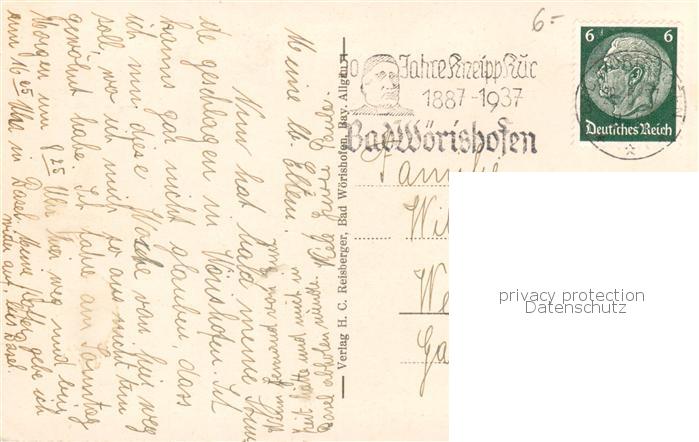 6.-
50 Jahre Kneipp Kur
1887-1937
Bad Wörishofen
6 6
Deutsches Reich
Familie
Wil
We
Ga
privacy protection
Datenschutz
Verlag H. C. Reisberger, Bad Wörishofen, Bay. Allgäu
Meine lb. Eltern!
Nun hat bald meine Stun-
de geschlagen in Wörishofen. Ich
kann gar nicht glauben, dass
ich nun diese Woche von hier weg
soll, wo ich mich so ans
gewöhnt habe. Ich fahre am Sonntag
Morgen um 8 25 Uhr hier weg und bin
um 16 25 Uhr in Basel. Meine Koffer gebe ich
auf bis Basel.
Basel abholen
Viele Grüsse